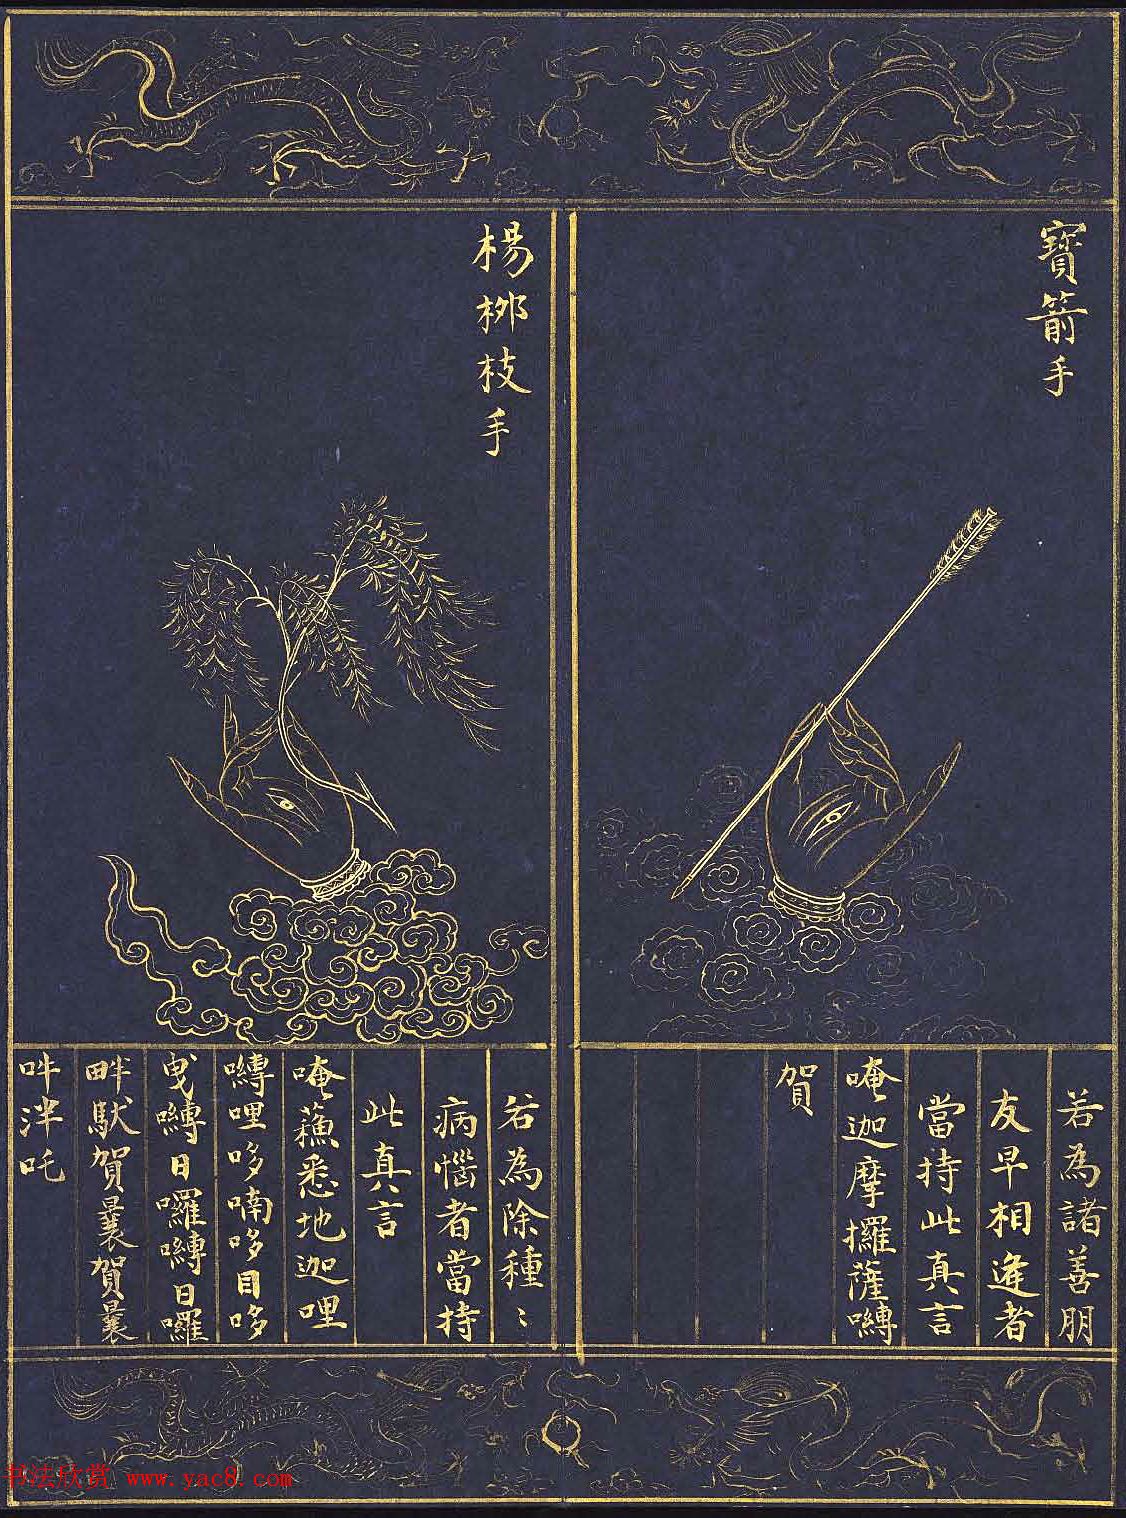 寶箭手
若為諸善朋
友早相逢者
當持此真言
唵迦摩攞薩嚩
賀
楊桺枝手
若為除種〻
病惱者當持
此真言
唵蘓悉地迦哩
嚩哩哆喃哆目哆
曳嚩日囉嚩日囉
畔馱賀曩賀曩
吽泮吒
书法欣赏 www.yac8.com